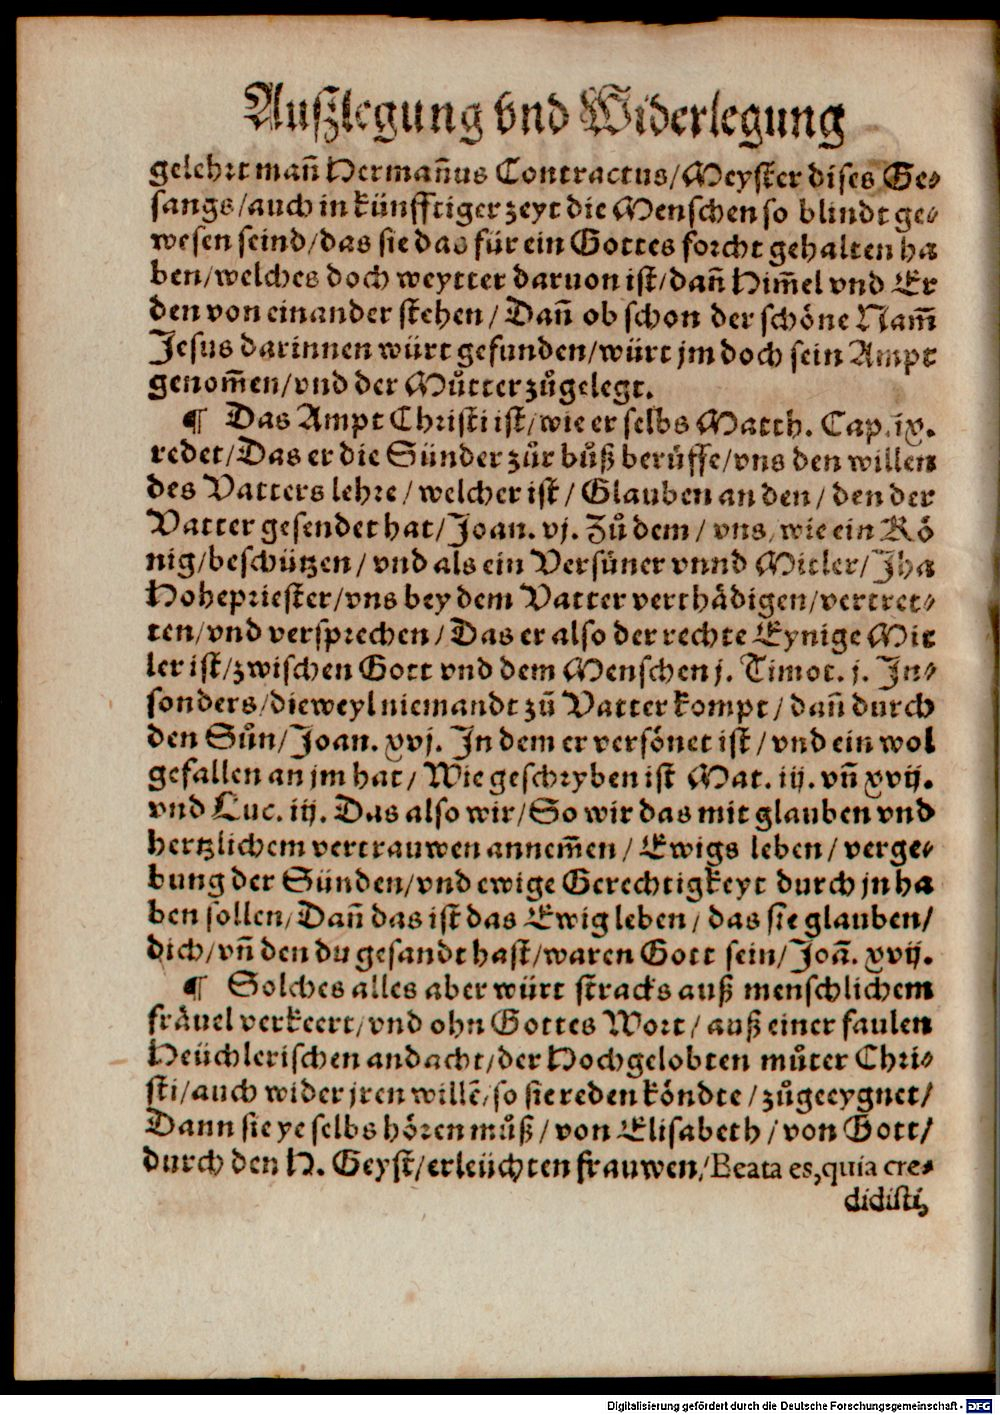 Auſzlegung vnd Widerlegung
gelehrt mañ Hermañus Contractus/Meyſter diſes Ge⸗
ſangs/auch in künfftiger zeyt die Menſchen ſo blindt ge⸗
weſen ſeind/das ſie das für ein Gottes forcht gehalten ha
ben/welches doch weytter daruon iſt/dañ Him̃el vnd Er
den von einander ſtehen/Dañ ob ſchon der ſchöne Nam̃
Jeſus darinnen würt gefunden/würt jm doch ſein Ampt
genom̃en/vnd der Můtter zůgelegt.
¶ Das Ampt Chriſti iſt/wie er ſelbs Matth. Cap. ix.
redet/Das er die Sünder zůr bůß berůffe/vns den willen
des Vatters lehre/welcher iſt/Glauben an den/den der
Vatter geſendet hat/Joan. vj. Zů dem/vns/wie ein Kö
nig/beſchützen/vnd als ein Verſüner vnnd Mitler/Jha
Hoheprieſter/vns bey dem Vatter verthädigen/vertret⸗
ten/vnd verſprechen/Das er alſo der rechte Eynige Mit
ler iſt/zwiſchen Gott vnd dem Menſchen j. Timot. j. In⸗
ſonders/dieweyl niemandt zů Vatter kompt/dañ durch
den Sůn/Joan. xvj. In dem er verſönet iſt/vnd ein wol
gefallen an jm hat/Wie geſchryben iſt Mat. iij. vñ xvij.
vnd Luc. iij. Das alſo wir/So wir das mit glauben vnd
hertzlichem vertrauwen annem̃en/Ewigs leben/verge⸗
bung der Sünden/vnd ewige Gerechtigkeyt durch jn ha
ben ſollen/Dañ das iſt das Ewig leben/das ſie glauben/
dich/vñ den du geſandt haſt/waren Gott ſein/Joã. xvij.
¶ Solches alles aber würt ſtracks auß menſchlichem
fräuel verkeert/vnd ohn Gottes Wort/auß einer faulen
Heüchleriſchen andacht/der Hochgelobten můter Chri⸗
ſti/auch wider jren willẽ/ſo ſie reden köndte/zůgeeygnet/
Dann ſie ye ſelbs hören můß/von Eliſabeth/von Gott/
durch den H. Geyſt/erleüchten frauwen/Beata es, quia cre⸗
didiſti,
Digitalisierung gefördert durch die Deutsche Forschungsgemeinschaft - DFG